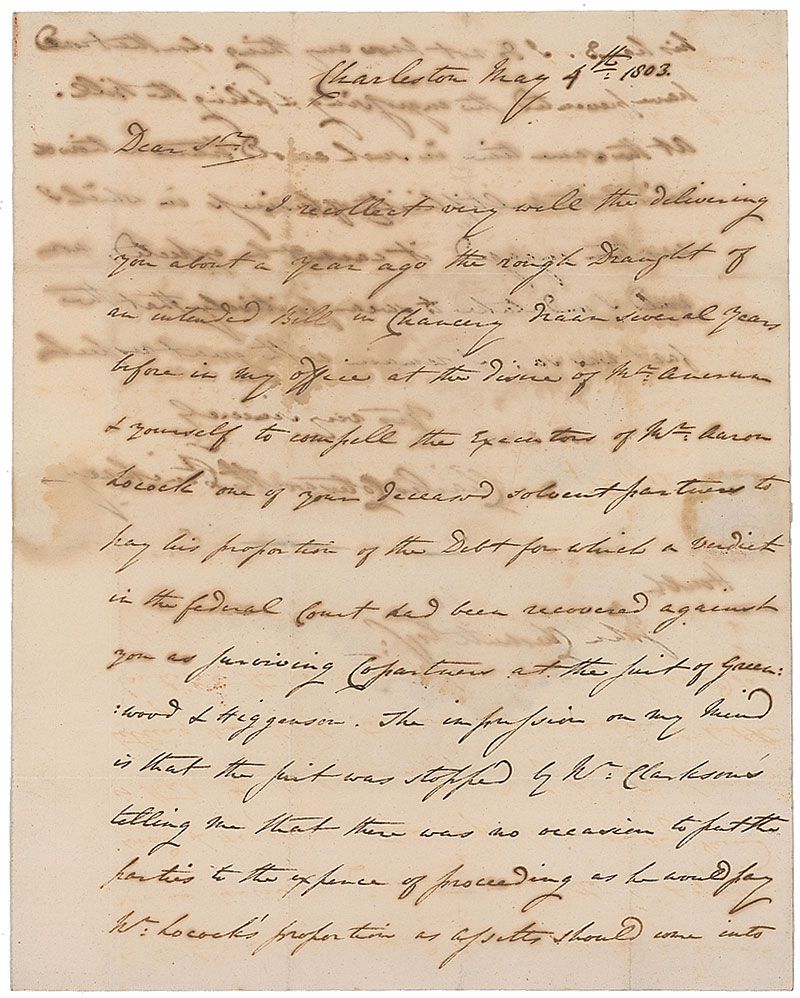 Charleston May 4th: 1803.
Dear Sir
I recollect very well the delivering
you about a Year ago the rough Draught of
an intended Bill in Chancery drawn several Years
before in my office at the desire of Mr:
& yourself to compell the Executors of Mr: Aaron
Locock one of your deceased solvent partners to
pay his proportion of the Debt for which a verdict
in the federal Court had been recovered against
you as surviving Copartners at the suit of Green:
:wood & Higgenson. The impression on my Mind
is that the suit was stopped by Mr: Clarkson's
telling me that there was no occasion to put the
parties to the expence of proceeding as he would pay
Mr: Locock's proportion as assetts should come into